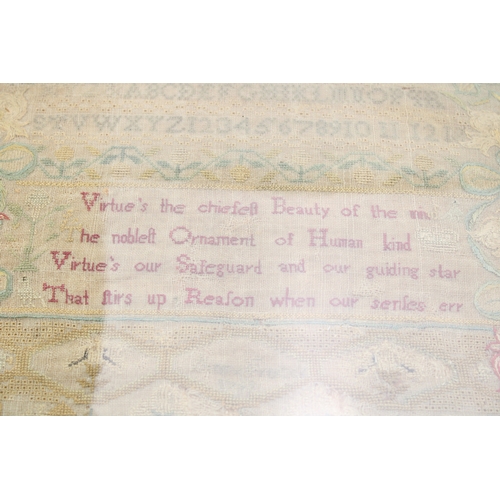 ABCDEFGHIKLM
STVWXYZ12345678910 11 12
Virtue's the chiefeſt Beauty of the
he nobleſt Ornament of Human kind
Virtue's our Safeguard and our guiding star
That ſtirs up Reaſon when our senſes err